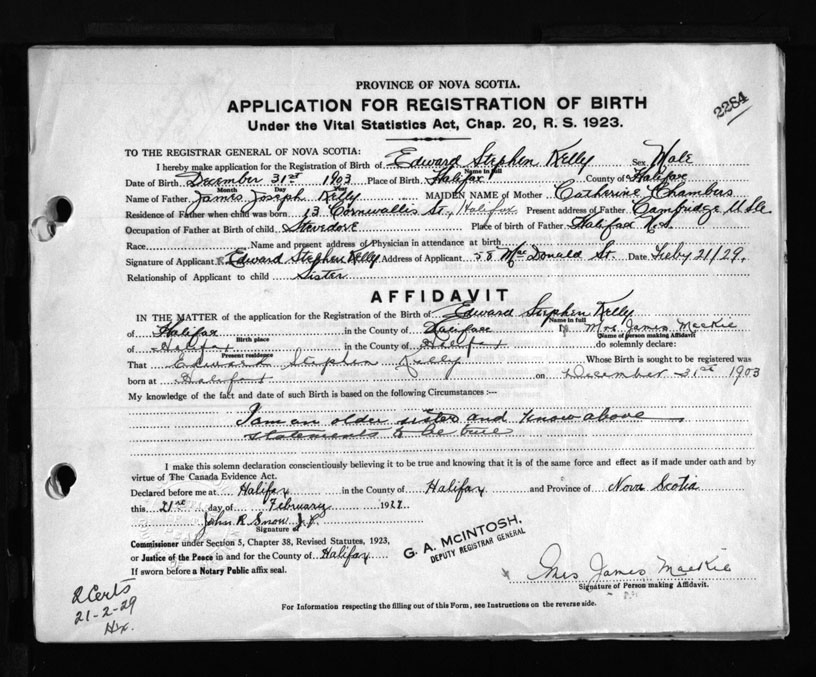 PROVINCE OF NOVA SCOTIA.
2284
APPLICATION FOR REGISTRATION OF BIRTH
Under the Vital Statistics Act, Chap. 20, R. S. 1923.
TO THE REGISTRAR GENERAL OF NOVA SCOTIA:
I hereby make application for the Registration of Birth of Edward Stephen Kelly Sex Male
Name in full
Date of Birth December 31st 1903 Place of Birth Halifax County of Halifax
Month Day Year
Name of Father James Joseph Kelly MAIDEN NAME of Mother Catherine Chambers
Residence of Father when child was born 13 Cornwallis St, Halifax Present address of Father Cambridge U.S.
Occupation of Father at Birth of child Stevedore Place of birth of Father Halifax N.S.
Race Name and present address of Physician in attendance at birth
Signature of Applicant Edward Stephen Kelly Address of Applicant McDonald St. Date 21/29.
Relationship of Applicant to child Sister
AFFIDAVIT
IN THE MATTER of the application for the Registration of the Birth of Edward Stephen Kelly
Name in full
of Halifax in the County of Halifax I, Mrs. James MacKie
Birth place Name of person making Affidavit
of Halifax in the County of Halifax do solemnly declare:
Present residence
That Edward Stephen Kelly Whose Birth is sought to be registered was
born at Halifax on December 31st 1903
My knowledge of the fact and date of such Birth is based on the following Circumstances :—
I am an older sister and know above
statements to be true
I make this solemn declaration conscientiously believing it to be true and knowing that it is of the same force and effect as if made under oath and by
virtue of The Canada Evidence Act.
Declared before me at Halifax in the County of Halifax and Province of Nova Scotia
this 21st day of February 192
John R Snow J.P.
Signature of
Commissioner under Section 5, Chapter 38, Revised Statutes, 1923,
or Justice of the Peace in and for the County of Halifax
If sworn before a Notary Public affix seal.
G. A. McINTOSH,
DEPUTY REGISTRAR GENERAL
Mrs James MacKie
Signature of Person making Affidavit.
2 Certs
21-2-29
Hx.
For Information respecting the filling out of this Form, see Instructions on the reverse side.